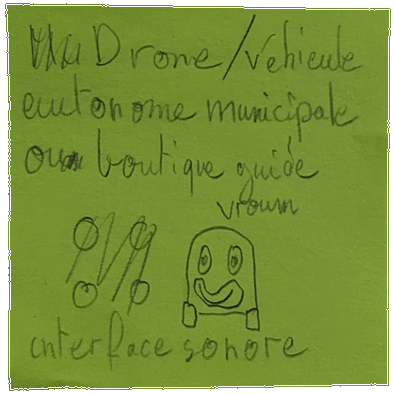 Drone/véhicule
autonome municipale
ou boutique guide
vroum
interface sonore